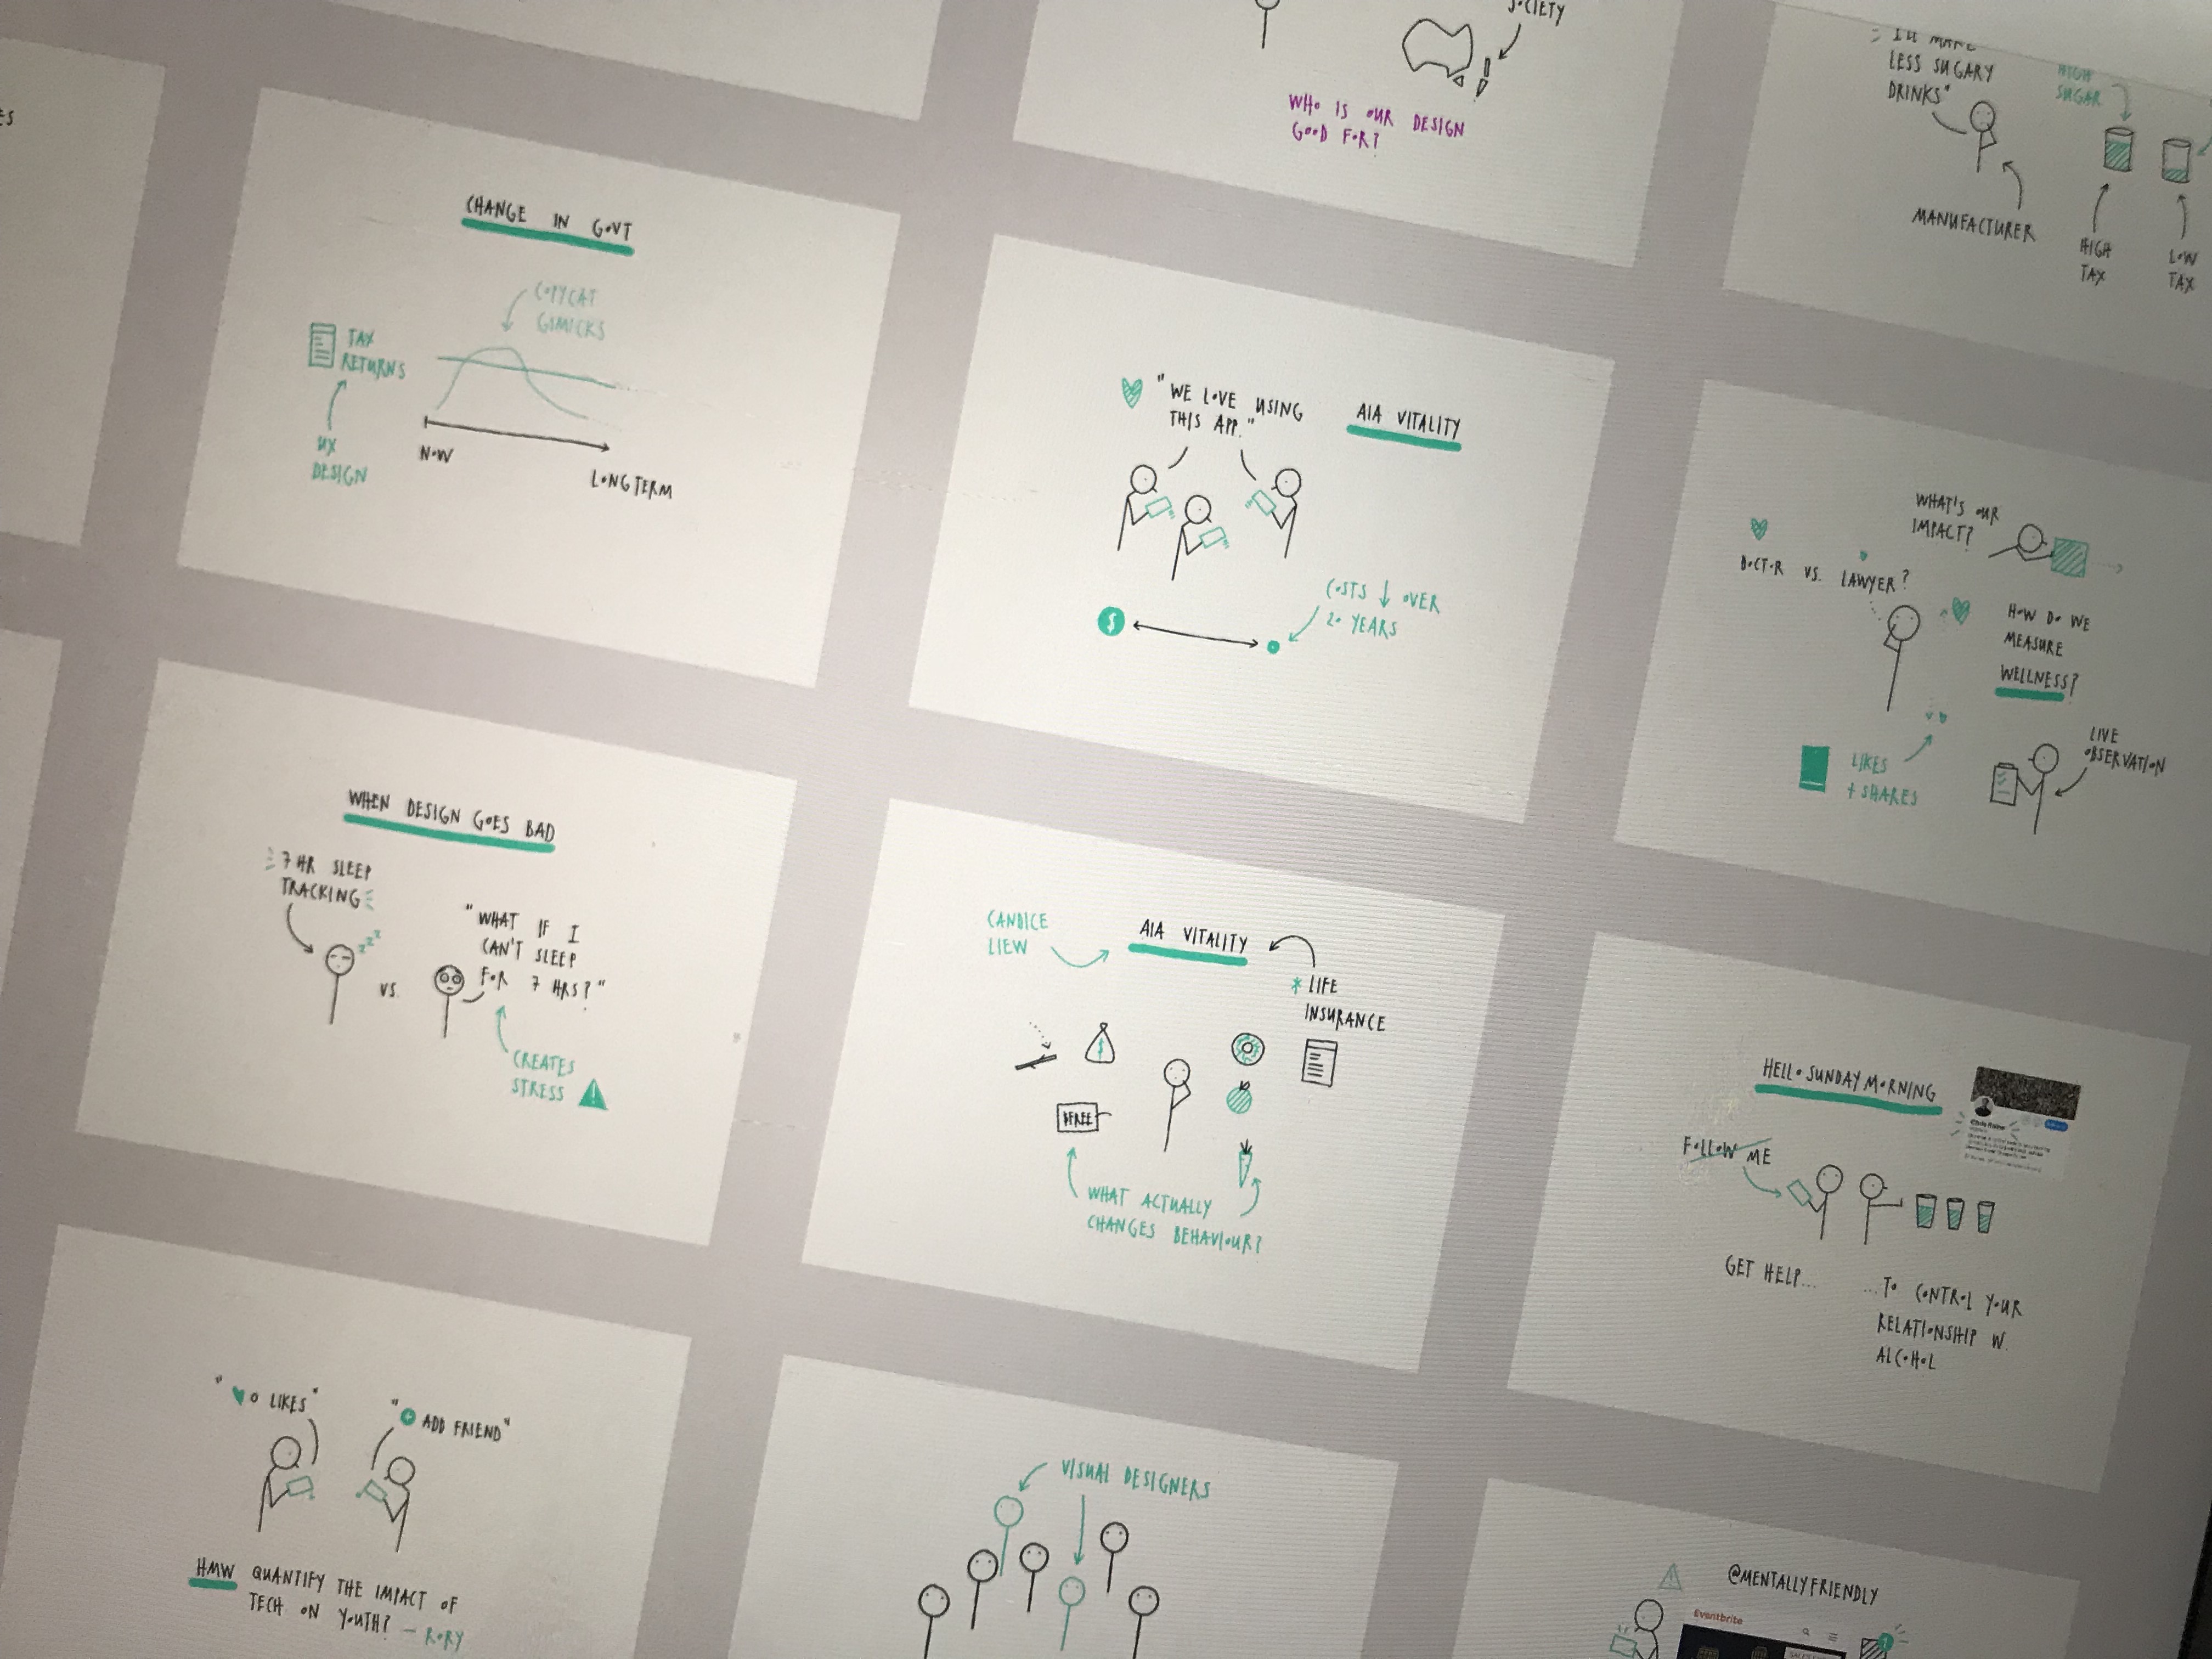 WHO IS OUR DESIGN
GOOD FOR?
LESS SUGARY
DRINKS"
HIGH
SUGAR
MANUFACTURER
HIGH
TAX
LOW
TAX
CHANGE IN GOVT
COPYCAT
GIMICKS
TAX
RETURNS
UX
DESIGN
NOW
LONG TERM
"WE LOVE USING
THIS APP."
AIA VITALITY
$
COSTS ↓ OVER
20 YEARS
WHAT'S OUR
IMPACT?
DOCTOR VS. LAWYER?
HOW DO WE
MEASURE
WELLNESS?
LIKES
+ SHARES
LIVE
OBSERVATION
WHEN DESIGN GOES BAD
7 HR SLEEP
TRACKING
zzz
VS.
"WHAT IF I
CAN'T SLEEP
FOR 7 HRS?"
CREATES
STRESS
CANDICE
LIEW
AIA VITALITY
* LIFE
INSURANCE
$
WHAT ACTUALLY
CHANGES BEHAVIOUR?
HELLO SUNDAY MORNING
FOLLOW ME
GET HELP...
...TO CONTROL YOUR
RELATIONSHIP W.
ALCOHOL
"0 LIKES"
"+ ADD FRIEND"
HMW QUANTIFY THE IMPACT OF
TECH ON YOUTH? — RORY
VISUAL DESIGNERS
@MENTALLYFRIENDLY
Eventbrite